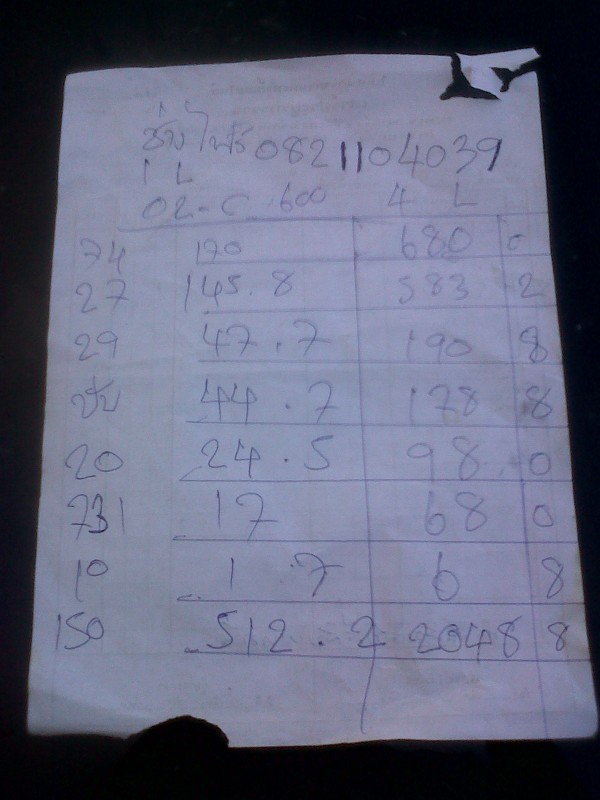 1 L
ช่างไพร 0821104039
1 L
02-C 600 4 L
74 170 680 0
27 145.8 583 2
29 47.7 190 8
ขับ 44.7 178 8
20 24.5 98 0
731 17 68 0
10 1.7 6 8
150 512.2 2048 8